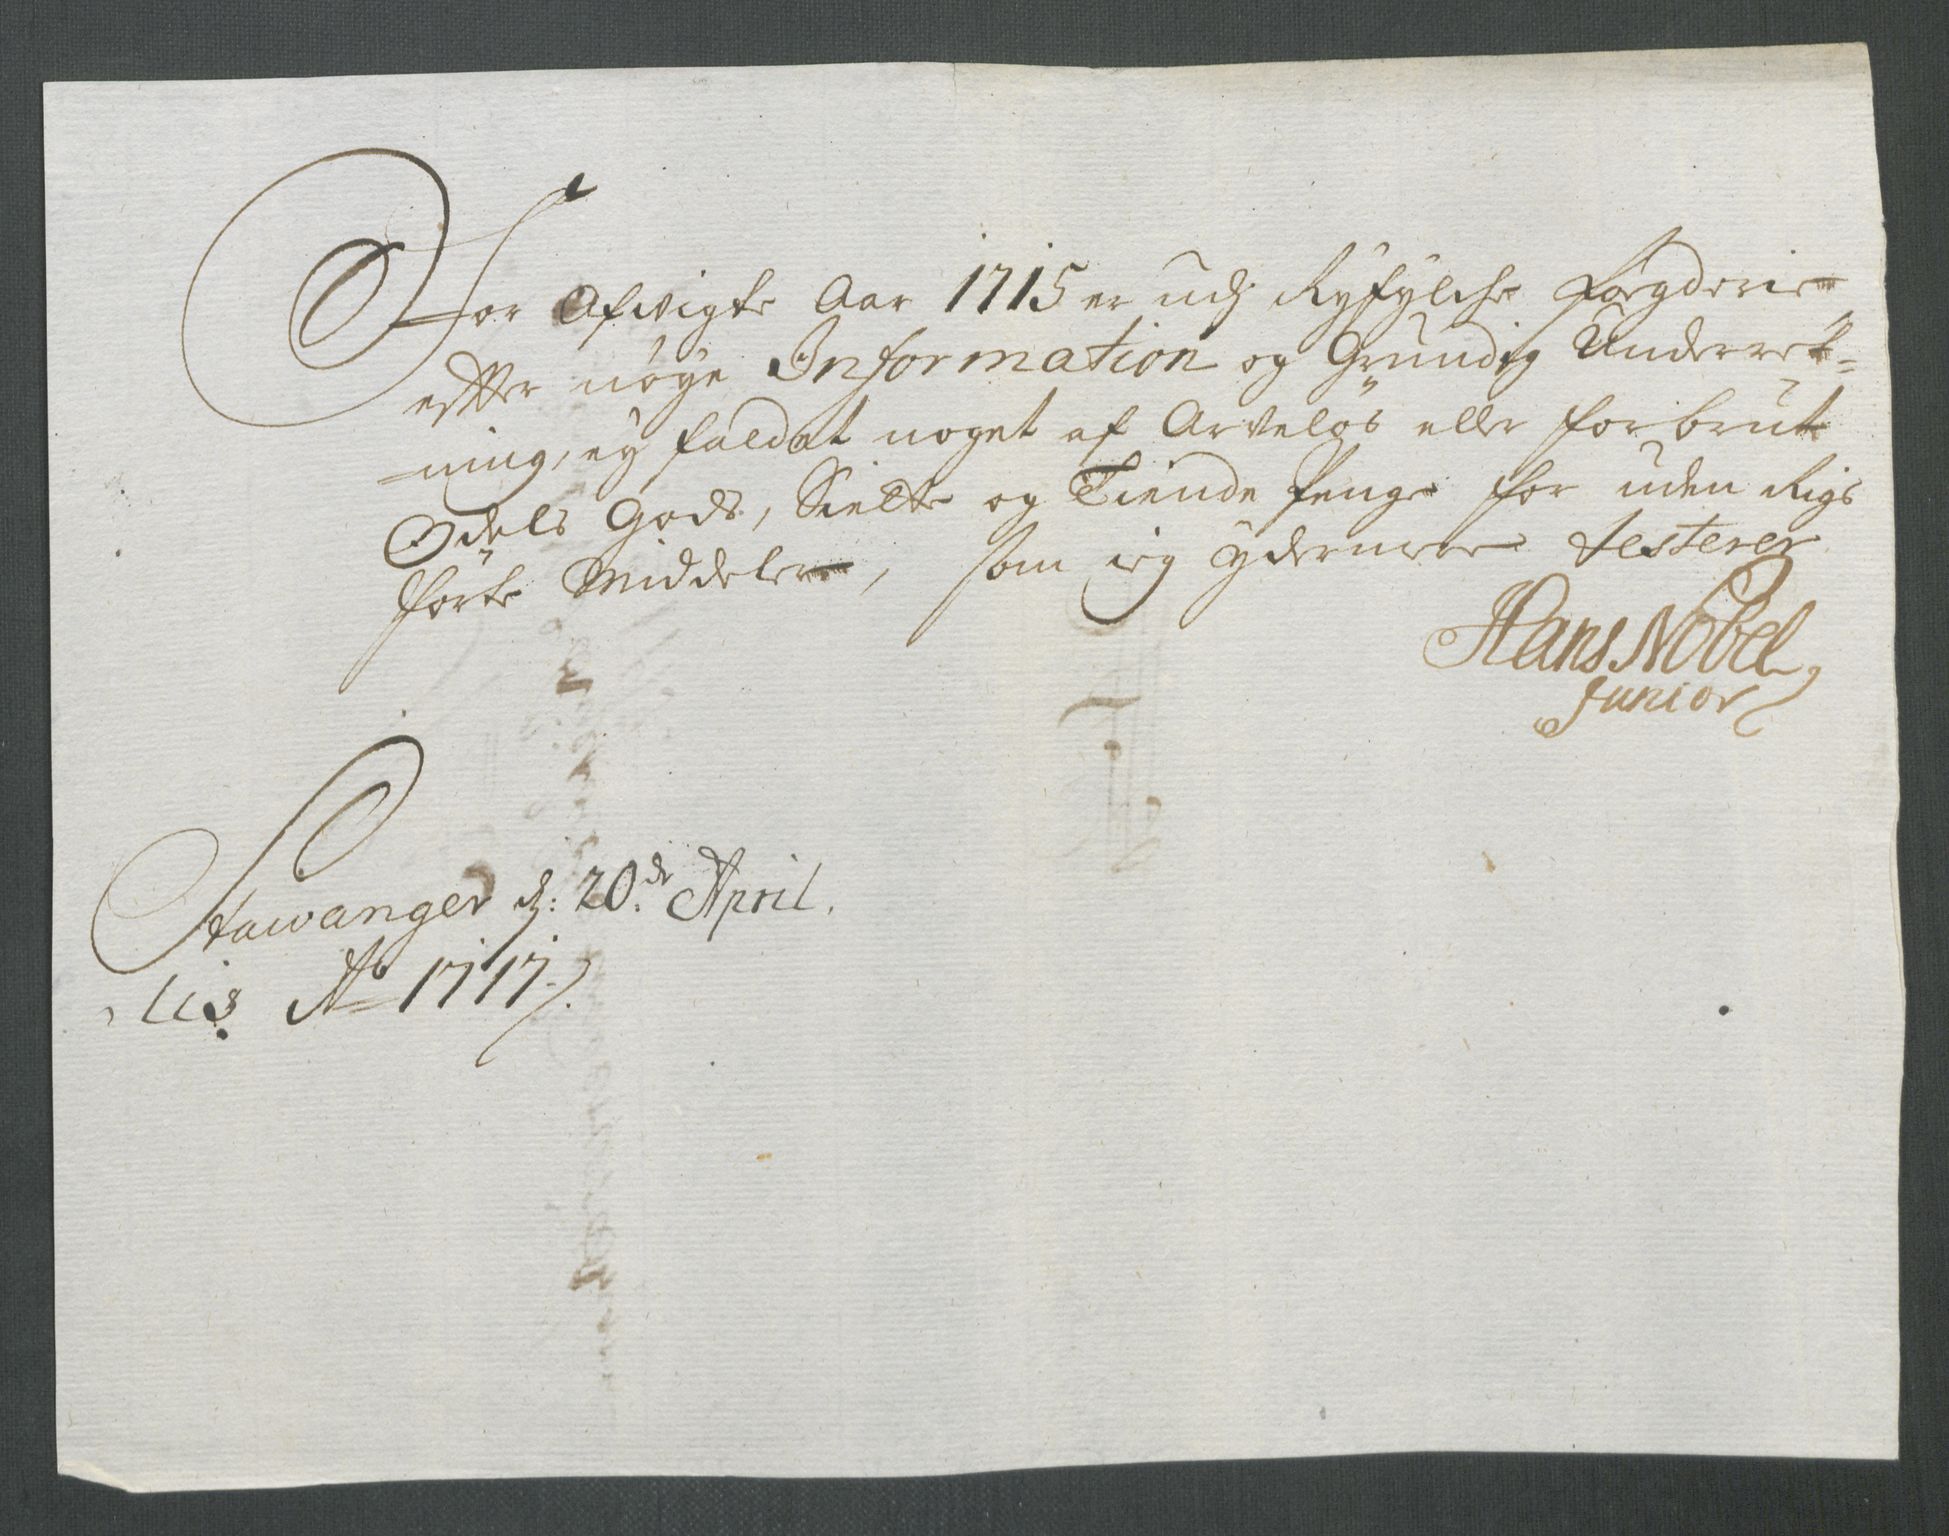 For Afvigte Aar 1715 er udj Ryfylche Fogderie
effter nøye Information og Grundig Underret=
ning, ey faldet noget af Arveløs eller forbrut
Odels Gods, Siette og Tiende Penge for uden Rigs
førte Middeler, som ieg ydermeere testerer
Hans Nobel
Junior
Stawanger d: 20de April.
lis Ao 1717.